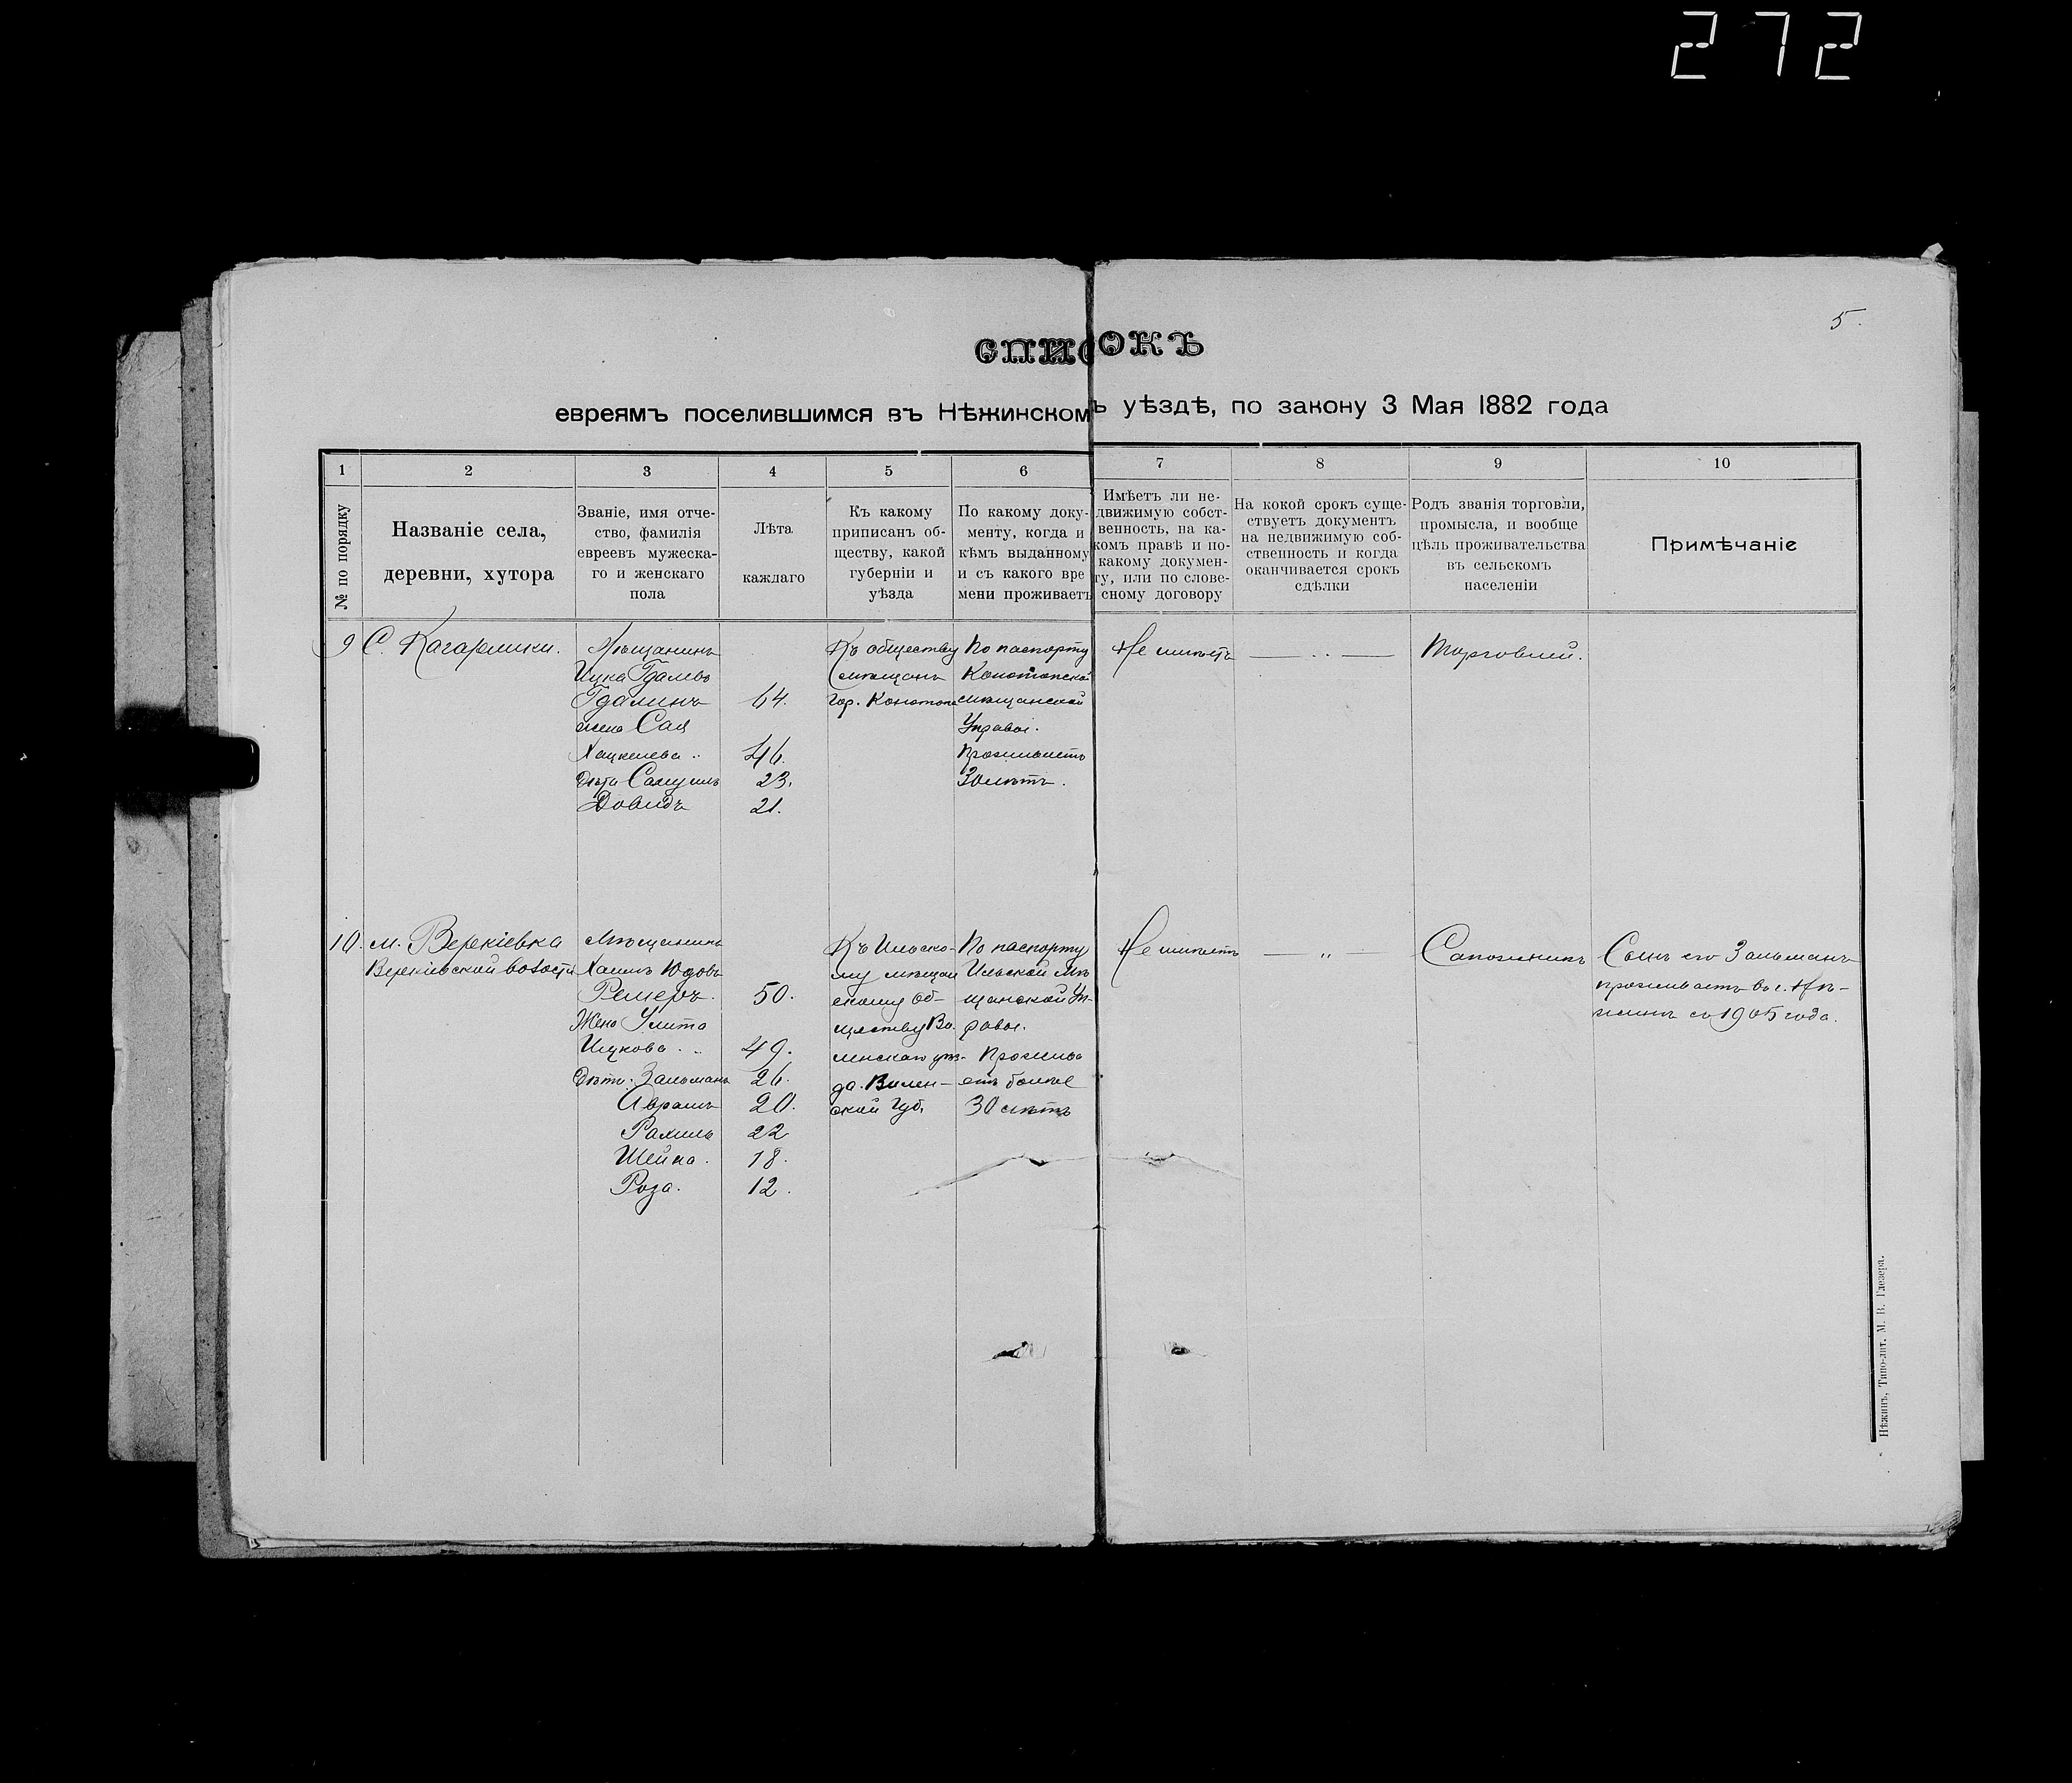 272
5.
СПИСОКЪ
евреямъ поселившимся въ Нѣжинскомъ уѣздѣ, по закону 3 Мая 1882 года
1 2 3 4 5 6 7 8 9 10
№ по порядку
Названіе села,
деревни, хутора
Званіе, имя отче-
ство, фамилія
евреевъ мужеска-
го и женскаго
пола
Лѣта
каждаго
Къ какому
приписанъ об-
ществу, какой
губерніи и
уѣзда
По какому доку-
менту, когда и
кѣмъ выданному
и съ какого вре
мени проживаетъ
Имѣетъ ли не-
движимую собст-
венность, на ка-
комъ правѣ и по-
какому докумен-
ту, или по слове-
сному договору
На кокой срокъ суще-
ствуетъ документъ
на недвижимую соб-
ственность и когда
оканчивается срокъ
сдѣлки
Родъ званія торговли,
промысла, и вообще
цѣль проживательства
въ сельскомъ
населеніи
Примѣчаніе
9 С. Кагарлики.
Мѣщанинъ
Ицка Гдалевъ
Гдалинъ 64.
жена Сая
Хацкелева 46.
дѣти Самуилъ 23.
Довидъ 21.
Къ обществу
мѣщанъ
гор. Конотопа
По паспорту
Конотопской
мѣщанской
Управы.
Проживаетъ
30 лѣтъ.
Не имѣетъ
— . . —
Торговлей.
10. м. Веркіевка
Веркіевской волости
Мѣщанинъ
Хаимъ Юдовъ
Ремеръ. 50.
Жена Улита
Ицкова 49.
Дѣти: Зальманъ 26.
Аврамъ 20.
Рахиль 22
Шейна. 18.
Роза. 12.
Къ Ильско-
му мѣщан
скому об-
ществу Ви
ленскаго уѣз-
да. Вилен-
ской губ.
По паспорту
Ильской мѣ
щанской Уп-
равы.
Прожива
етъ болѣе
30 лѣтъ
Не имѣетъ
— „ —
Сапожникъ
Сынъ его Зальманъ
проживаетъ въ г. Нѣ-
жинѣ съ 1905 года.
Нѣжинъ, Типо-лит. М. В. Глезера.